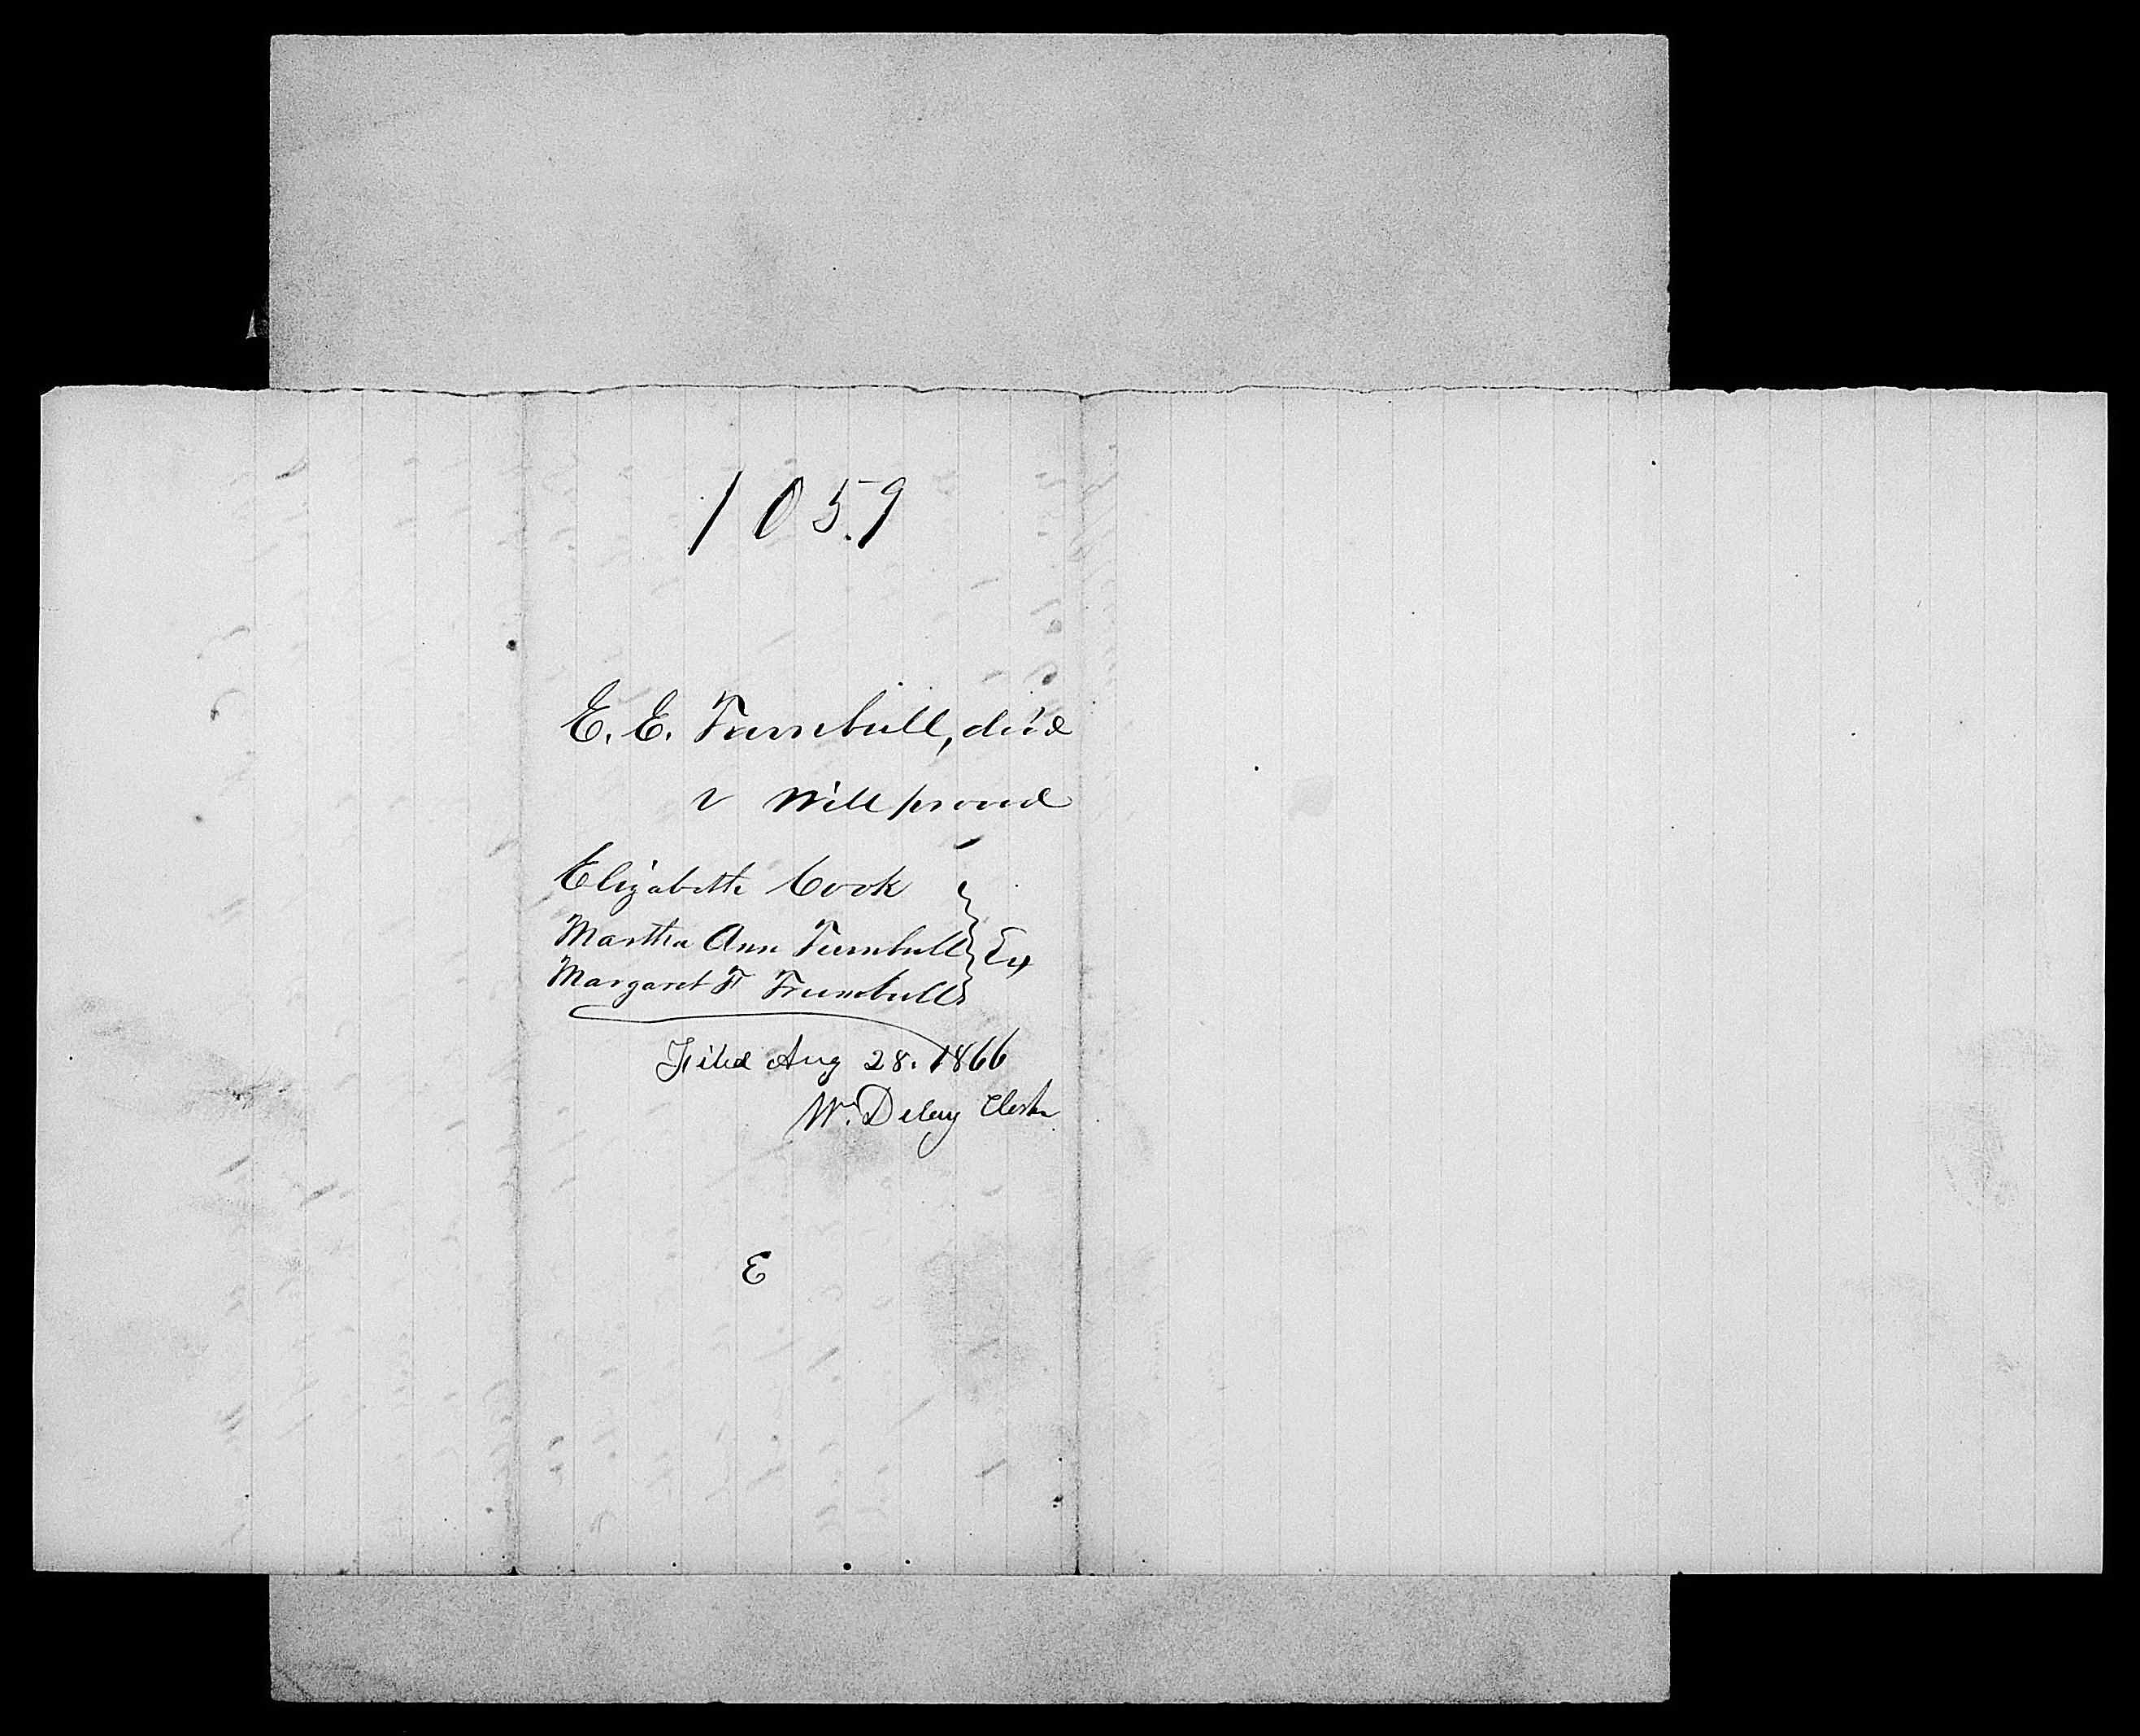 1059
E. E. Turnbull, dec'd
Will proved
Elizabeth Cook
Martha Ann Turnbull } Ex
Margaret F Trumbull
Filed Aug 28. 1866
Wm. Delay Clerk
E